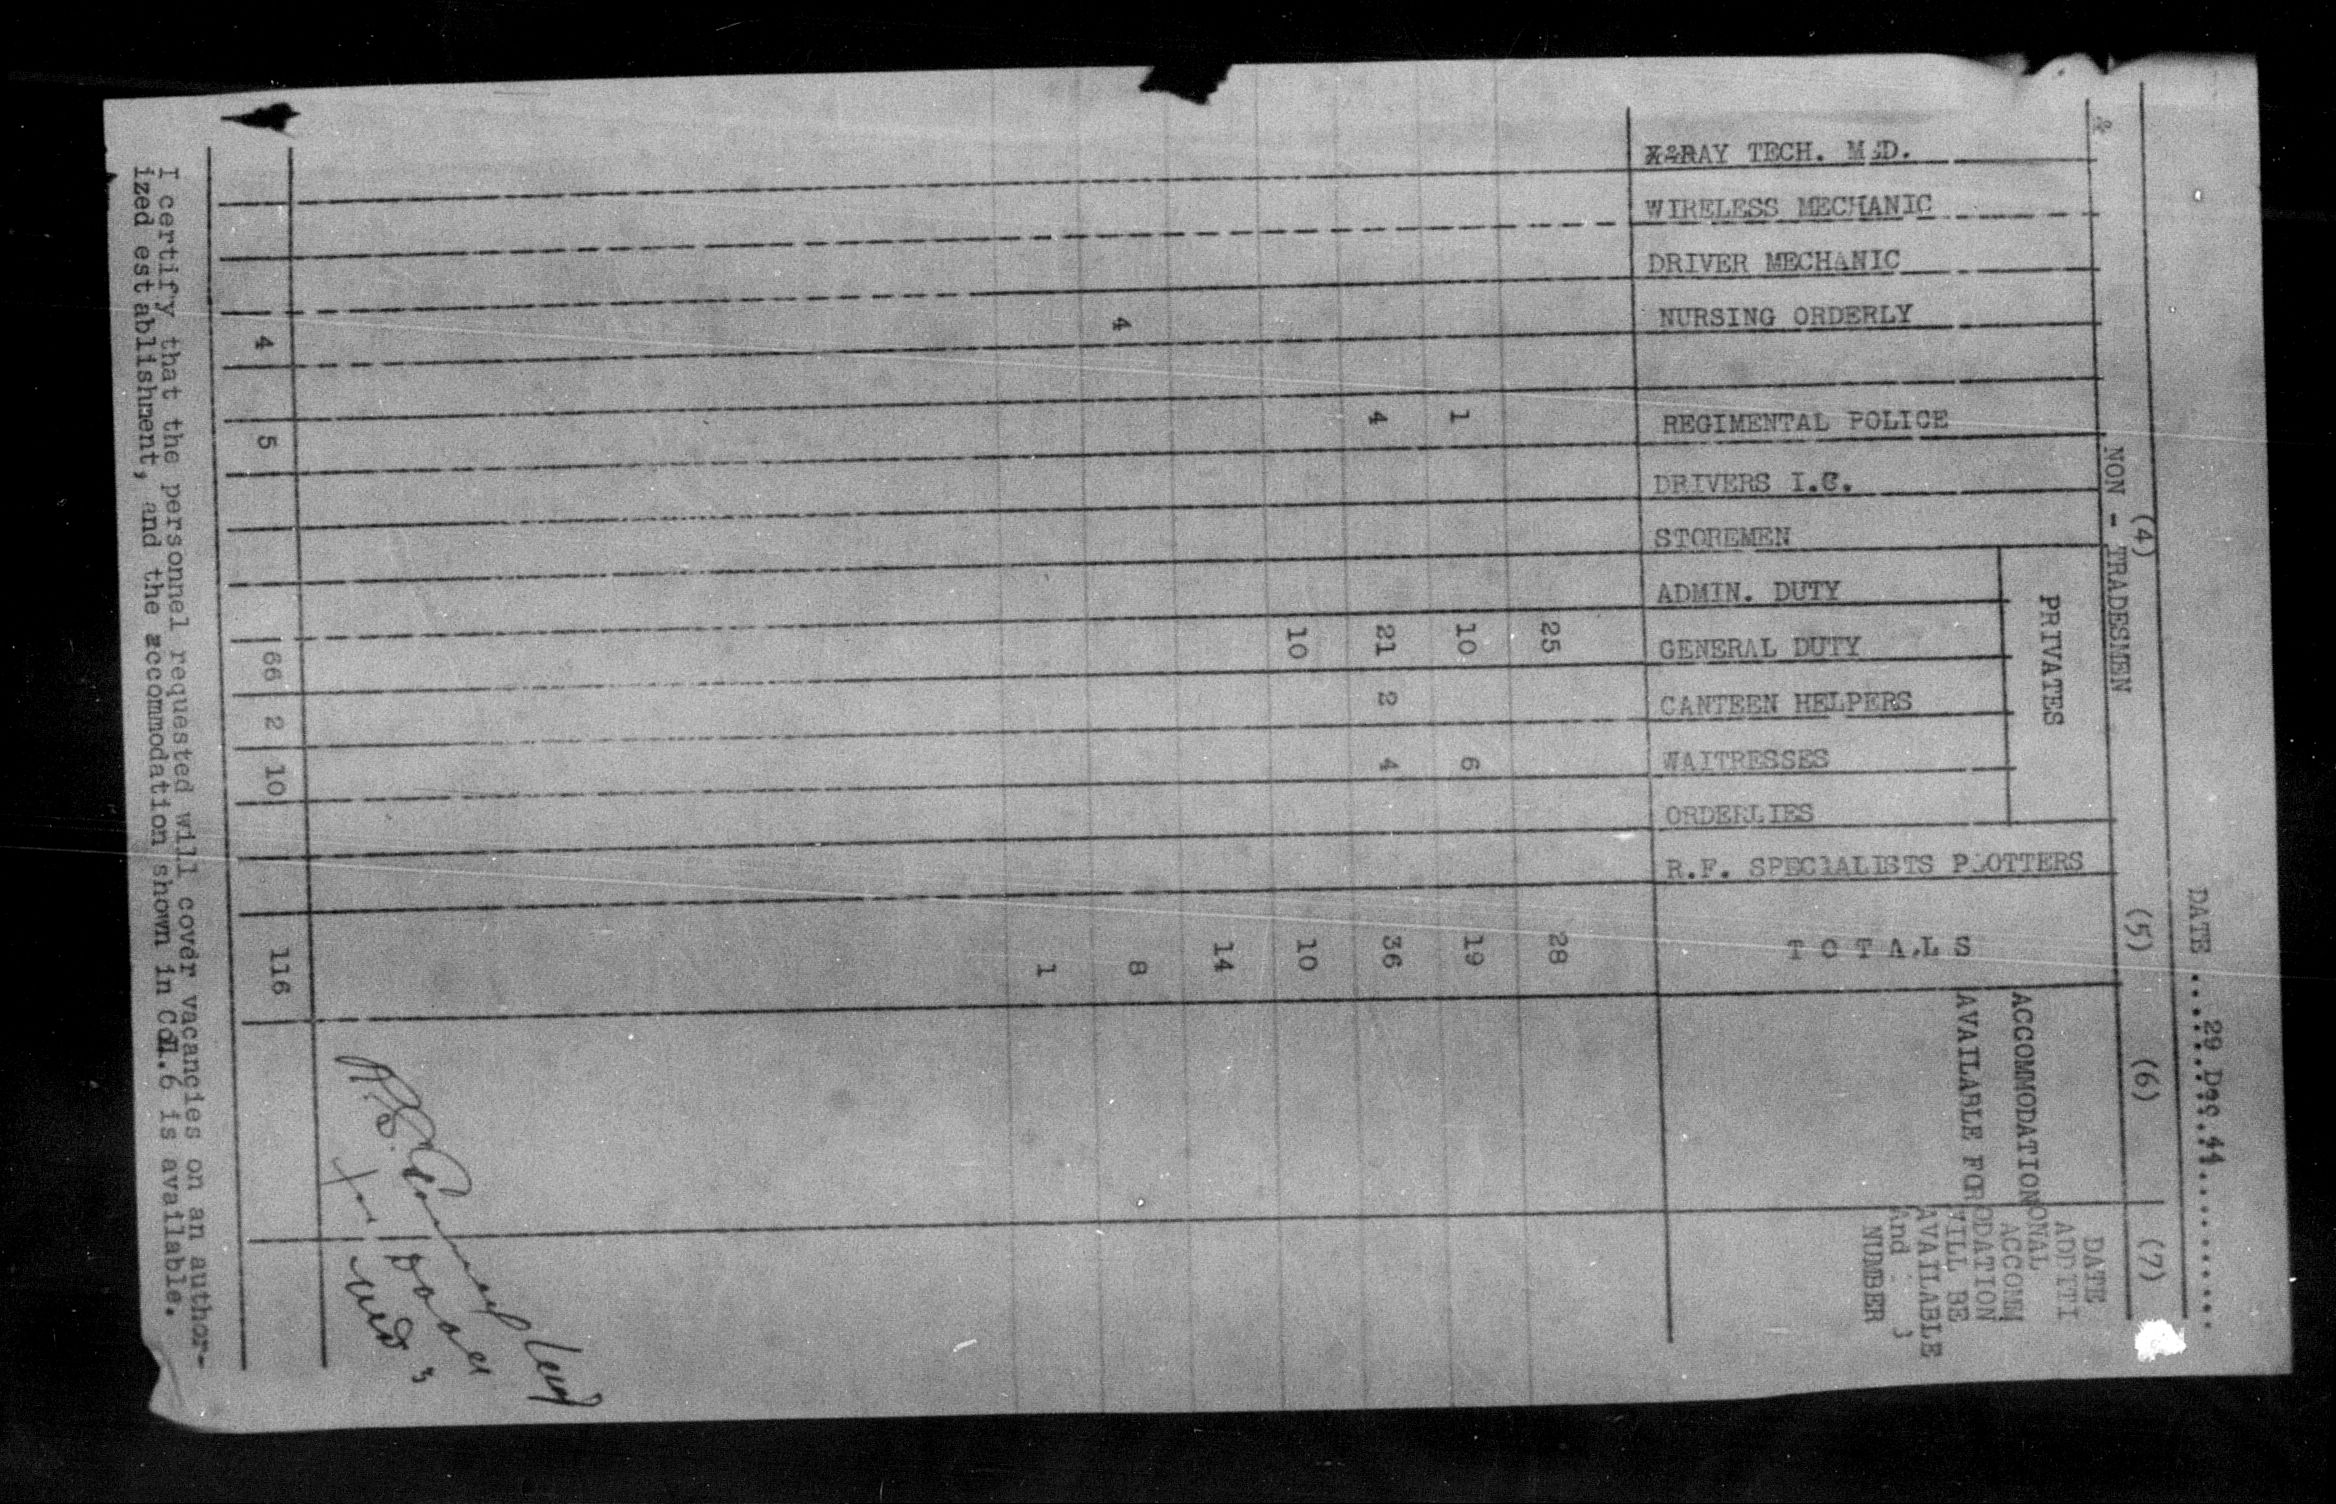 DATE ... 29 Dec. 44 ...
(4) (5) (6) (7)
NON - TRADESMEN
PRIVATES
X-RAY TECH. M.D.
WIRELESS MECHANIC
DRIVER MECHANIC
NURSING ORDERLY
REGIMENTAL POLICE
DRIVERS I.C.
STOREMEN
ADMIN. DUTY
GENERAL DUTY
CANTEEN HELPERS
WAITRESSES
ORDERLIES
R.F. SPECIALISTS PLOTTERS
TOTALS
ACCOMMODATION
AVAILABLE FOR
DATE
ADDITI
ONAL
ACCOMM
ODATION
WILL BE
AVAILABLE
And
NUMBER
25 28
1 10 6 19
4 21 2 4 36
10 10
14
4 8
1
4 5 66 2 10 116
I certify that the personnel requested will cover vacancies on an author-
ized establishment, and the accommodation shown in Col.6 is available.